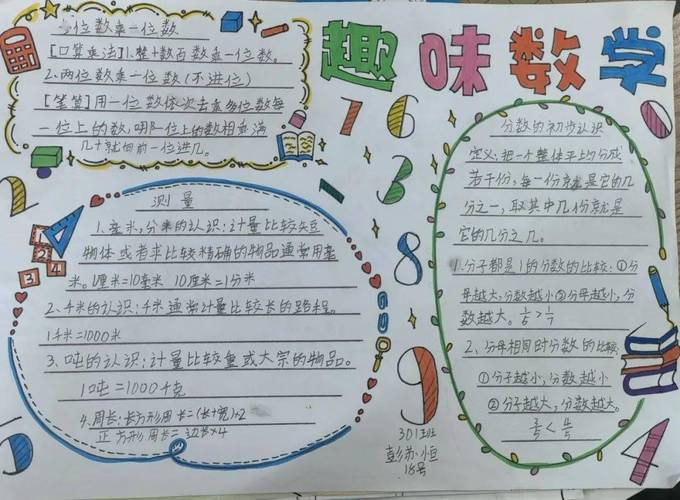 趣味数学
多位数乘一位数
[口算乘法]1、整十数百数乘一位数。
2、两位数乘一位数(不进位)
[笔算]用一位数依次去乘多位数每
一位上的数,哪一位上的数相乘满
几十就向前一位进几。
测量
1、毫米,分米的认识:计量比较短
物体或者求比较精确的物品通常用毫
米。1厘米=10毫米 10厘米=1分米
2、千米的认识:千米通常计量比较长的路程。
1千米=1000米
3、吨的认识:计量比较重或大宗的物品。
1吨=1000千克
4、周长:长方形周长=(长+宽)×2
正方形周长=边长×4
分数的初步认识
定义:把一个整体平均分成
若干份,每一份就是它的几
分之一,取其中几份就是
它的几分之几。
1、分子都是1的分数的比较:①分
母越大,分数越小②分母越小,分
数越大。1/5>1/7
2、分母相同时分数的比较:
①分子越小,分数越小
②分子越大,分数越大。
3/5<4/5
1 6 0
3
1
8
9
4
1 2
2 3
301班
18号